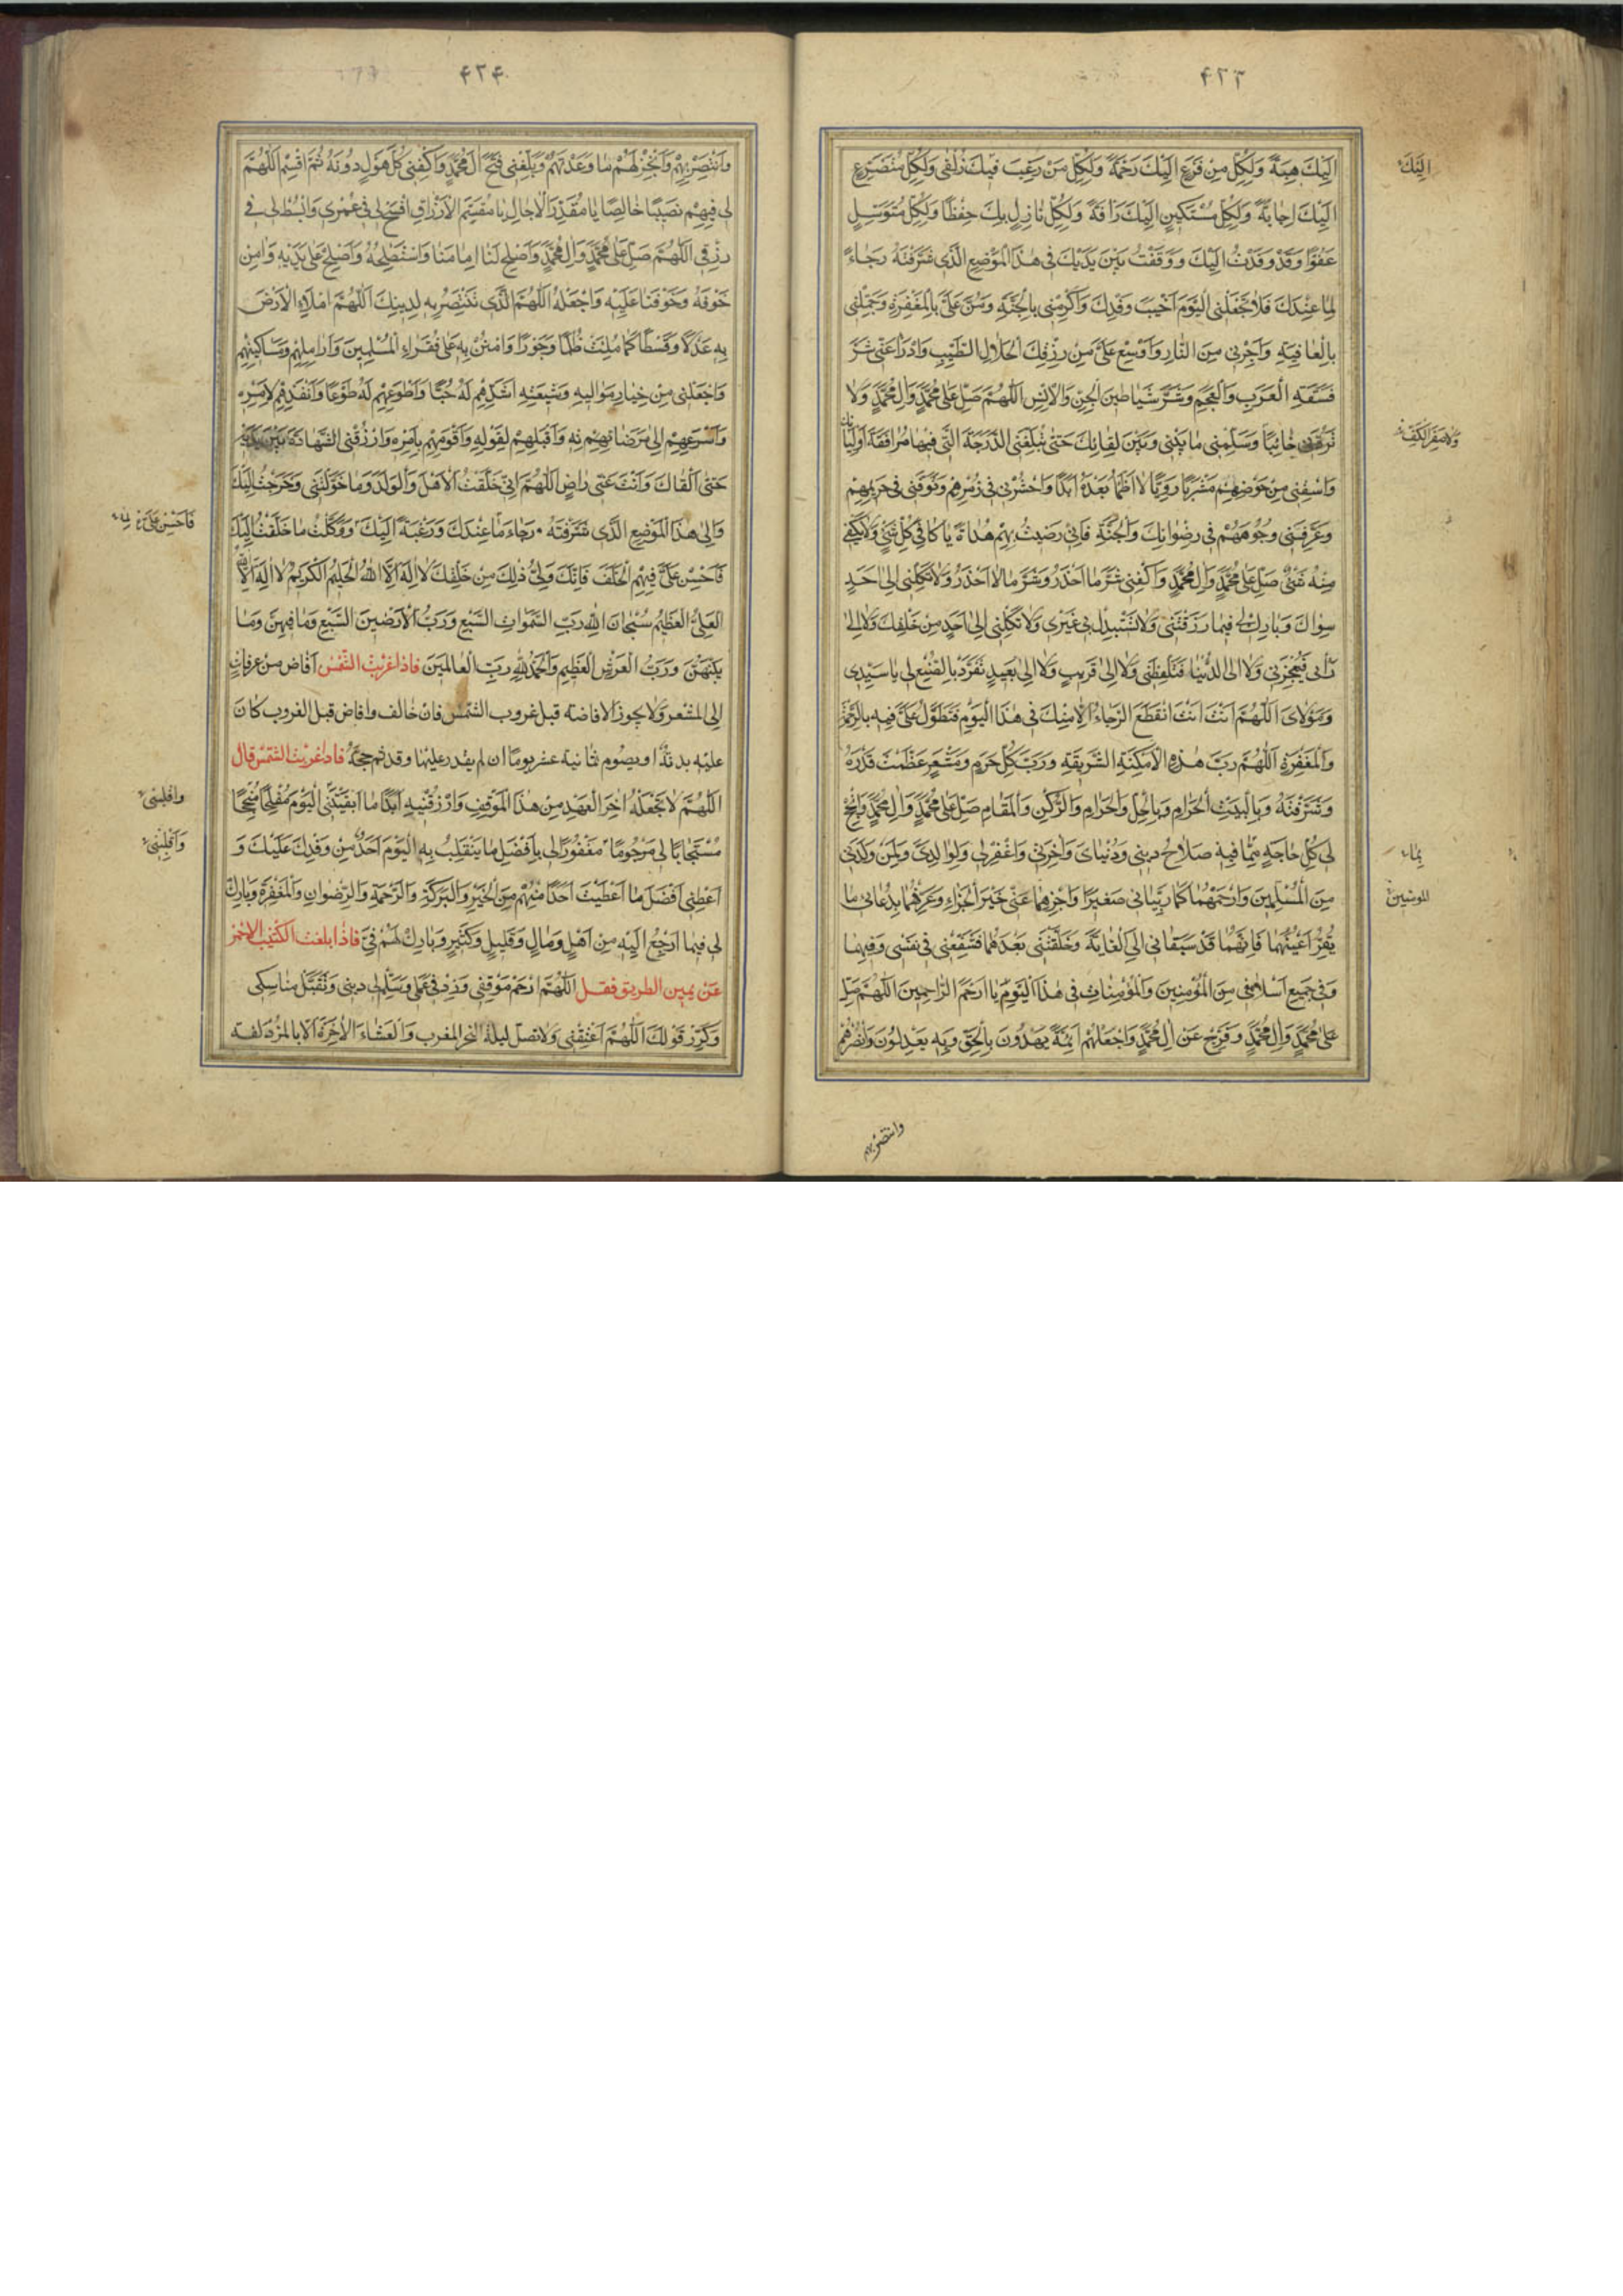 ۴۲۳
اِلَيْكَ هِبَةً وَلِكُلِّ مَنْ فَزِعَ اِلَيْكَ رَحْمَةً وَلِكُلِّ مَنْ رَغِبَ فيكَ زُلْفى وَلِكُلِّ مُتَضَرِّعٍ
اِلَيْكَ اِجابَةً وَلِكُلِّ مُسْتَكينٍ اِلَيْكَ رَاْفَةً وَلِكُلِّ نازِلٍ بِكَ حِفْظًا وَلِكُلِّ مُتَوَسِّلٍ
عَفْوًا وَقَدْ وَفَدْتُ اِلَيْكَ وَوَقَفْتُ بَيْنَ يَدَيْكَ فى هذَا الْمَوْضِعِ الَّذى شَرَّفْتَهُ رَجاءً
لِما عِنْدَكَ فَلا تَجْعَلْنِى الْيَوْمَ اَخْيَبَ وَفْدِكَ وَاَكْرِمْنى بِالْجَنَّةِ وَمُنَّ عَلَىَّ بِالْمَغْفِرَةِ وَجَمِّلْنى
بِالْعافِيَةِ وَاَجِرْنى مِنَ النّارِ وَاَوْسِعْ عَلَىَّ مِنْ رِزْقِكَ الْحَلالِ الطَّيِّبِ وَادْرَأْ عَنّى شَرَّ
فَسَقَةِ الْعَرَبِ وَالْعَجَمِ وَشَرَّ شَياطينِ الْجِنِّ وَالْاِنْسِ اَللّهُمَّ صَلِّ عَلى مُحَمَّدٍ وَالِ مُحَمَّدٍ وَلا
تَرُدَّنى خائِبًا وَسَلِّمْنى ما بَيْنى وَبَيْنَ لِقائِكَ حَتّى تُبَلِّغَنِى الدَّرَجَةَ الَّتى فيها مُرافَقَةُ اَوْلِيائِكَ
وَاسْقِنى مِنْ حَوْضِهِمْ مَشْرَبًا رَوِيًّا لا اَظْمَأُ بَعْدَهُ اَبَدًا وَاحْشُرْنى فى زُمْرَتِهِمْ وَتَوَفَّنى فى حَرِيمِهِمْ
وَعَرِّفْنى وُجُوهَهُمْ فى رِضْوانِكَ وَالْجَنَّةِ فَاِنّى رَضيتُ بِهِمْ هُداةً يا كافِىَ كُلِّ شَىْءٍ وَلا يَكْفى
مِنْهُ شَىْءٌ صَلِّ عَلى مُحَمَّدٍ وَالِ مُحَمَّدٍ وَاكْفِنى شَرَّ ما اَحْذَرُ وَشَرَّ ما لا اَحْذَرُ وَلا تَكِلْنى اِلى اَحَدٍ
سِواكَ وَبارِكْ لى فيما رَزَقْتَنى وَلا تَسْتَبْدِلْ بى غَيْرى وَلا تَكِلْنى اِلى اَحَدٍ مِنْ خَلْقِكَ وَلا اِلى
رَاْيى فَيُعْجِزَنى وَلا اِلَى الدُّنْيا فَتَلْفِظَنى وَلا اِلى قَريبٍ وَلا اِلى بَعيدٍ تَفَرَّدْ بِالصُّنْعِ لى يا سَيِّدى
وَمَوْلاىَ اَللّهُمَّ اَنْتَ اَنْتَ انْقَطَعَ الرَّجاءُ اِلّا مِنْكَ فى هذَا الْيَوْمِ فَتَطَوَّلْ عَلَىَّ فيهِ بِالرَّحْمَةِ
وَالْمَغْفِرَةِ اَللّهُمَّ رَبَّ هذِهِ الْاَمْكِنَةِ الشَّريفَةِ وَرَبَّ كُلِّ حَرَمٍ وَمَشْعَرٍ عَظَّمْتَ قَدْرَهُ
وَشَرَّفْتَهُ وَبِالْبَيْتِ الْحَرامِ وَبِالْحِلِّ وَالْحَرامِ وَالرُّكْنِ وَالْمَقامِ صَلِّ عَلى مُحَمَّدٍ وَالِ مُحَمَّدٍ وَانْجِحْ
لى كُلَّ حاجَةٍ مِمّا فيهِ صَلاحُ دينى وَدُنْياىَ وَاخِرَتى وَاغْفِرْ لى وَلِوالِدَىَّ وَلِمَنْ وَلَدَنى
مِنَ الْمُسْلِمينَ وَارْحَمْهُما كَما رَبَّيانى صَغيرًا وَاجْزِهِما عَنّى خَيْرَ الْجَزاءِ وَعَرِّفْهُما بِدُعائى ما
يُقِرُّ اَعْيُنَهُما فَاِنَّهُما قَدْ سَبَقانى اِلَى الْغايَةِ وَخَلَّفْتَنى بَعْدَهُما فَشَفِّعْنى فى نَفْسى وَفيهِما
وَفى جَميعِ اَسْلافى مِنَ الْمُؤْمِنينَ وَالْمُؤْمِناتِ فى هذَا الْيَوْمِ يا اَرْحَمَ الرّاحِمينَ اَللّهُمَّ صَلِّ
عَلى مُحَمَّدٍ وَالِ مُحَمَّدٍ وَفَرِّجْ عَنْ الِ مُحَمَّدٍ وَاجْعَلْهُمْ اَئِمَّةً يَهْدُونَ بِالْحَقِّ وَبِهِ يَعْدِلُونَ وَانْصُرْهُمْ
اِلَيْكَ
وَلا صِفْرَ الْكَفِّ
بِما
المؤمنين
وانتصر بهم
۴۲۴
وَانْتَصِرْ بِهِمْ وَاَنْجِزْ لَهُمْ ما وَعَدْتَهُمْ وَبَلِّغْنى فَتْحَ الِ مُحَمَّدٍ وَاكْفِنى كُلَّ هَوْلٍ دُونَهُ ثُمَّ اقْسِمِ اَللّهُمَّ
لى فيهِمْ نَصيبًا خالِصًا يا مُقَدِّرَ الْاجالِ يا مُقَسِّمَ الْاَرْزاقِ افْسَحْ لى فى عُمْرى وَابْسُطْ لى فى
رِزْقى اَللّهُمَّ صَلِّ عَلى مُحَمَّدٍ وَالِ مُحَمَّدٍ وَاَصْلِحْ لَنا اِمامَنا وَاسْتَصْلِحْهُ وَاَصْلِحْ عَلى يَدَيْهِ وَامِنْ
خَوْفَهُ وَخَوْفَنا عَلَيْهِ وَاجْعَلْهُ اَللّهُمَّ الَّذى تَنْتَصِرُ بِهِ لِدينِكَ اَللّهُمَّ امْلَاِ الْاَرْضَ
بِهِ عَدْلًا وَقِسْطًا كَما مُلِئَتْ ظُلْمًا وَجَوْرًا وَامْنُنْ بِهِ عَلى فُقَراءِ الْمُسْلِمينَ وَاَرامِلِهِمْ وَمَساكينِهِمْ
وَاجْعَلْنى مِنْ خِيارِ مَواليهِ وَشيعَتِهِ اَشَدِّهِمْ لَهُ حُبًّا وَاَطْوَعِهِمْ لَهُ طَوْعًا وَاَنْفَذِهِمْ لِاَمْرِهِ
وَاَسْرَعِهِمْ اِلى مَرْضاتِهِ وَاَقْبَلِهِمْ لِقَوْلِهِ وَاَقْوَمِهِمْ بِاَمْرِهِ وَارْزُقْنِى الشَّهادَةَ بَيْنَ يَدَيْهِ
حَتّى اَلْقاكَ وَاَنْتَ عَنّى راضٍ اَللّهُمَّ اِنّى خَلَّفْتُ الْاَهْلَ وَالْوَلَدَ وَما خَوَّلْتَنى وَخَرَجْتُ اِلَيْكَ
وَاِلى هذَا الْمَوْضِعِ الَّذى شَرَّفْتَهُ رَجاءَ ما عِنْدَكَ وَرَغْبَةً اِلَيْكَ وَوَكَّلْتُ ما خَلَّفْتُ اِلَيْكَ
فَاَحْسِنْ عَلَىَّ فيهِمُ الْخَلَفَ فَاِنَّكَ وَلِىُّ ذلِكَ مِنْ خَلْقِكَ لا اِلهَ اِلَّا اللّهُ الْحَليمُ الْكَريمُ لا اِلهَ اِلَّا اللّهُ
الْعَلِىُّ الْعَظيمُ سُبْحانَ اللّهِ رَبِّ السَّمواتِ السَّبْعِ وَرَبِّ الْاَرَضينَ السَّبْعِ وَما فيهِنَّ وَما
بَيْنَهُنَّ وَرَبِّ الْعَرْشِ الْعَظيمِ وَالْحَمْدُ لِلّهِ رَبِّ الْعالَمينَ فاذا غربت الشّمس اَفاض من عرفات
الى المشعر ولا يجوز الافاضة قبل غروب الشمس فان خالف وافاض قبل الغروب كان
عليه بدنة او يصوم ثمانية عشر يوما ان لم يقدر عليها وقد تم حجّه فاذا غربت الشمس قال
اَللّهُمَّ لا تَجْعَلْهُ اخِرَ الْعَهْدِ مِنْ هذَا الْمَوْقِفِ وَارْزُقْنيهِ اَبَدًا ما اَبْقَيْتَنِى الْيَوْمَ مُفْلِحًا مُنْجِحًا
مُسْتَجابًا لى مَرْحُومًا مَغْفُورًا لى بِاَفْضَلِ ما يَنْقَلِبُ بِهِ الْيَوْمَ اَحَدٌ مِنْ وَفْدِكَ عَلَيْكَ وَ
اَعْطِنى اَفْضَلَ ما اَعْطَيْتَ اَحَدًا مِنْهُمْ مِنَ الْخَيْرِ وَالْبَرَكَةِ وَالرَّحْمَةِ وَالرِّضْوانِ وَالْمَغْفِرَةِ وَبارِكْ
لى فيما اَرْجِعُ اِلَيْهِ مِنْ اَهْلٍ وَمالٍ وَقَليلٍ وَكَثيرٍ وَبارِكْ لَهُمْ فِىَّ فاذا بلغت الكثيب الاحمر
عن يمين الطريق فقل اَللّهُمَّ ارْحَمْ مَوْقِفى وَزِدْ فى عَمَلى وَسَلِّمْ لى دينى وَتَقَبَّلْ مَناسِكى
وَكَرِّرْ قَوْلَكَ اَللّهُمَّ اَعْتِقْنى وَلا تصلّ ليلة النحر المغرب وَالعشاء الاخرة الّا بالمزدلفه
فَاَحْسِنْ عَلَىَّ
واقلبنى
وَاَقْلِبْنى